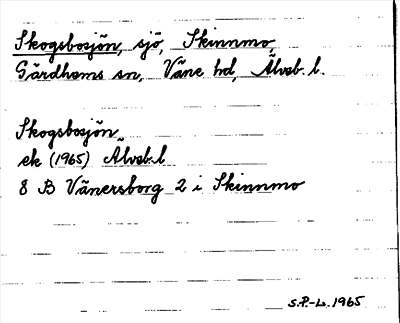 Skogsbosjön, sjö, Skinnmo,
Gärdhems sn, Väne hd, Älvsb. l.
Skogsbosjön
ek (1965) Älvsb. l
8 B Vänersborg 2 i Skinnmo
S.P.-L. 1965